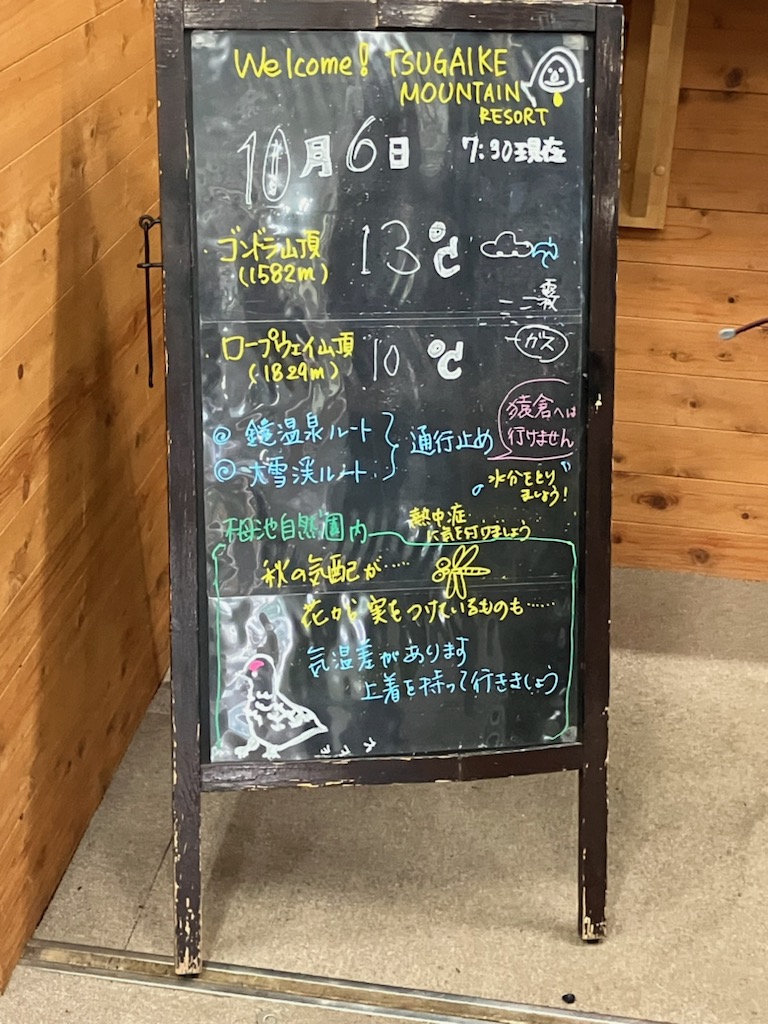 Welcome! TSUGAIKE
MOUNTAIN
RESORT
10月6日 7:30現在
ゴンドラ山頂 13℃
(1582m)
ロープウェイ山頂 10℃
(1829m)
ガス
猿倉へは
行けません
◎ 鑓温泉ルート
◎ 大雪渓ルート
通行止め
水分をとり
ましょう!
熱中症
に気を付けましょう
栂池自然園内
秋の気配が……
花から実をつけているものも……
気温差があります
上着を持って行きましょう